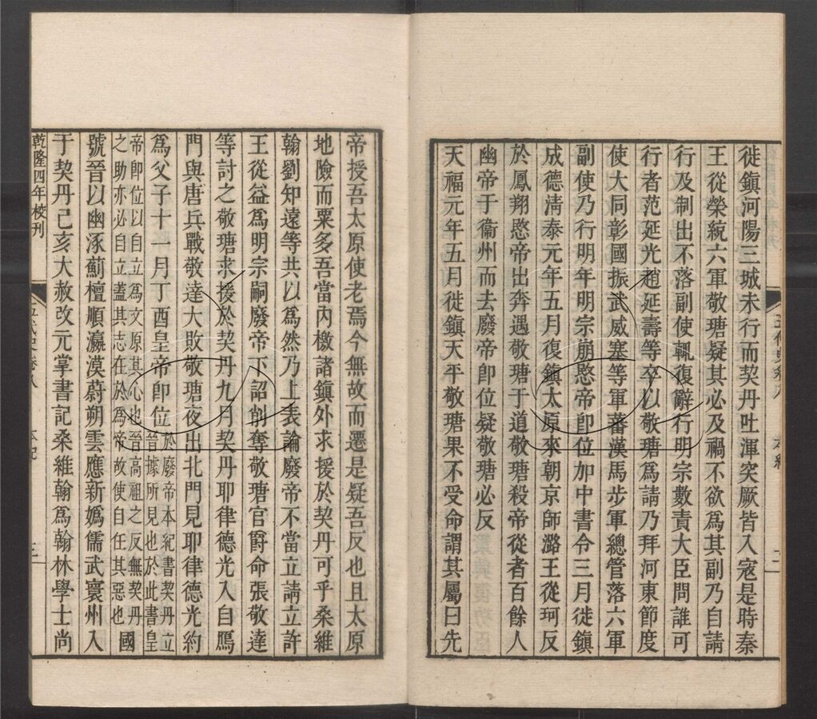 徙鎮河陽三城未行而契丹吐渾突厥皆入寇是時秦
王從榮統六軍敬瑭疑其必及禍不欲爲其副乃自請
行及制出不落副使輒復辭行明宗數責大臣問誰可
行者范延光趙延壽等卒以敬瑭爲請乃拜河東節度
使大同彰國振武威塞等軍蕃漢馬步軍總管落六軍
副使乃行明年明宗崩愍帝卽位加中書令三月徙鎮
成德清泰元年五月復鎮太原來朝京師潞王從珂反
於鳳翔愍帝出奔遇敬瑭于道敬瑭殺帝從者百餘人
幽帝于衞州而去廢帝卽位疑敬瑭必反
天福元年五月徙鎮天平敬瑭果不受命謂其屬曰先
帝授吾太原使老焉今無故而遷是疑吾反也且太原
地險而粟多吾當內檄諸鎮外求援於契丹可乎桑維
翰劉知遠等共以爲然乃上表論廢帝不當立請立許
王從益爲明宗嗣廢帝下詔削奪敬瑭官爵命張敬達
等討之敬瑭求援於契丹九月契丹耶律德光入自鴈
門與唐兵戰敬達大敗敬瑭夜出北門見耶律德光約
爲父子十一月丁酉皇帝卽位於廢帝本紀書契丹立晉據所見也於此書皇
帝卽位以自立爲文原其心也晉高祖之反無契丹之助亦必自立蓋其志在於爲帝故使自任其惡也國
號晉以幽涿薊檀順瀛漠蔚朔雲應新媯儒武寰州入
于契丹己亥大赦改元掌書記桑維翰爲翰林學士尚
乾隆四年校刊
五代史卷八
本紀
三